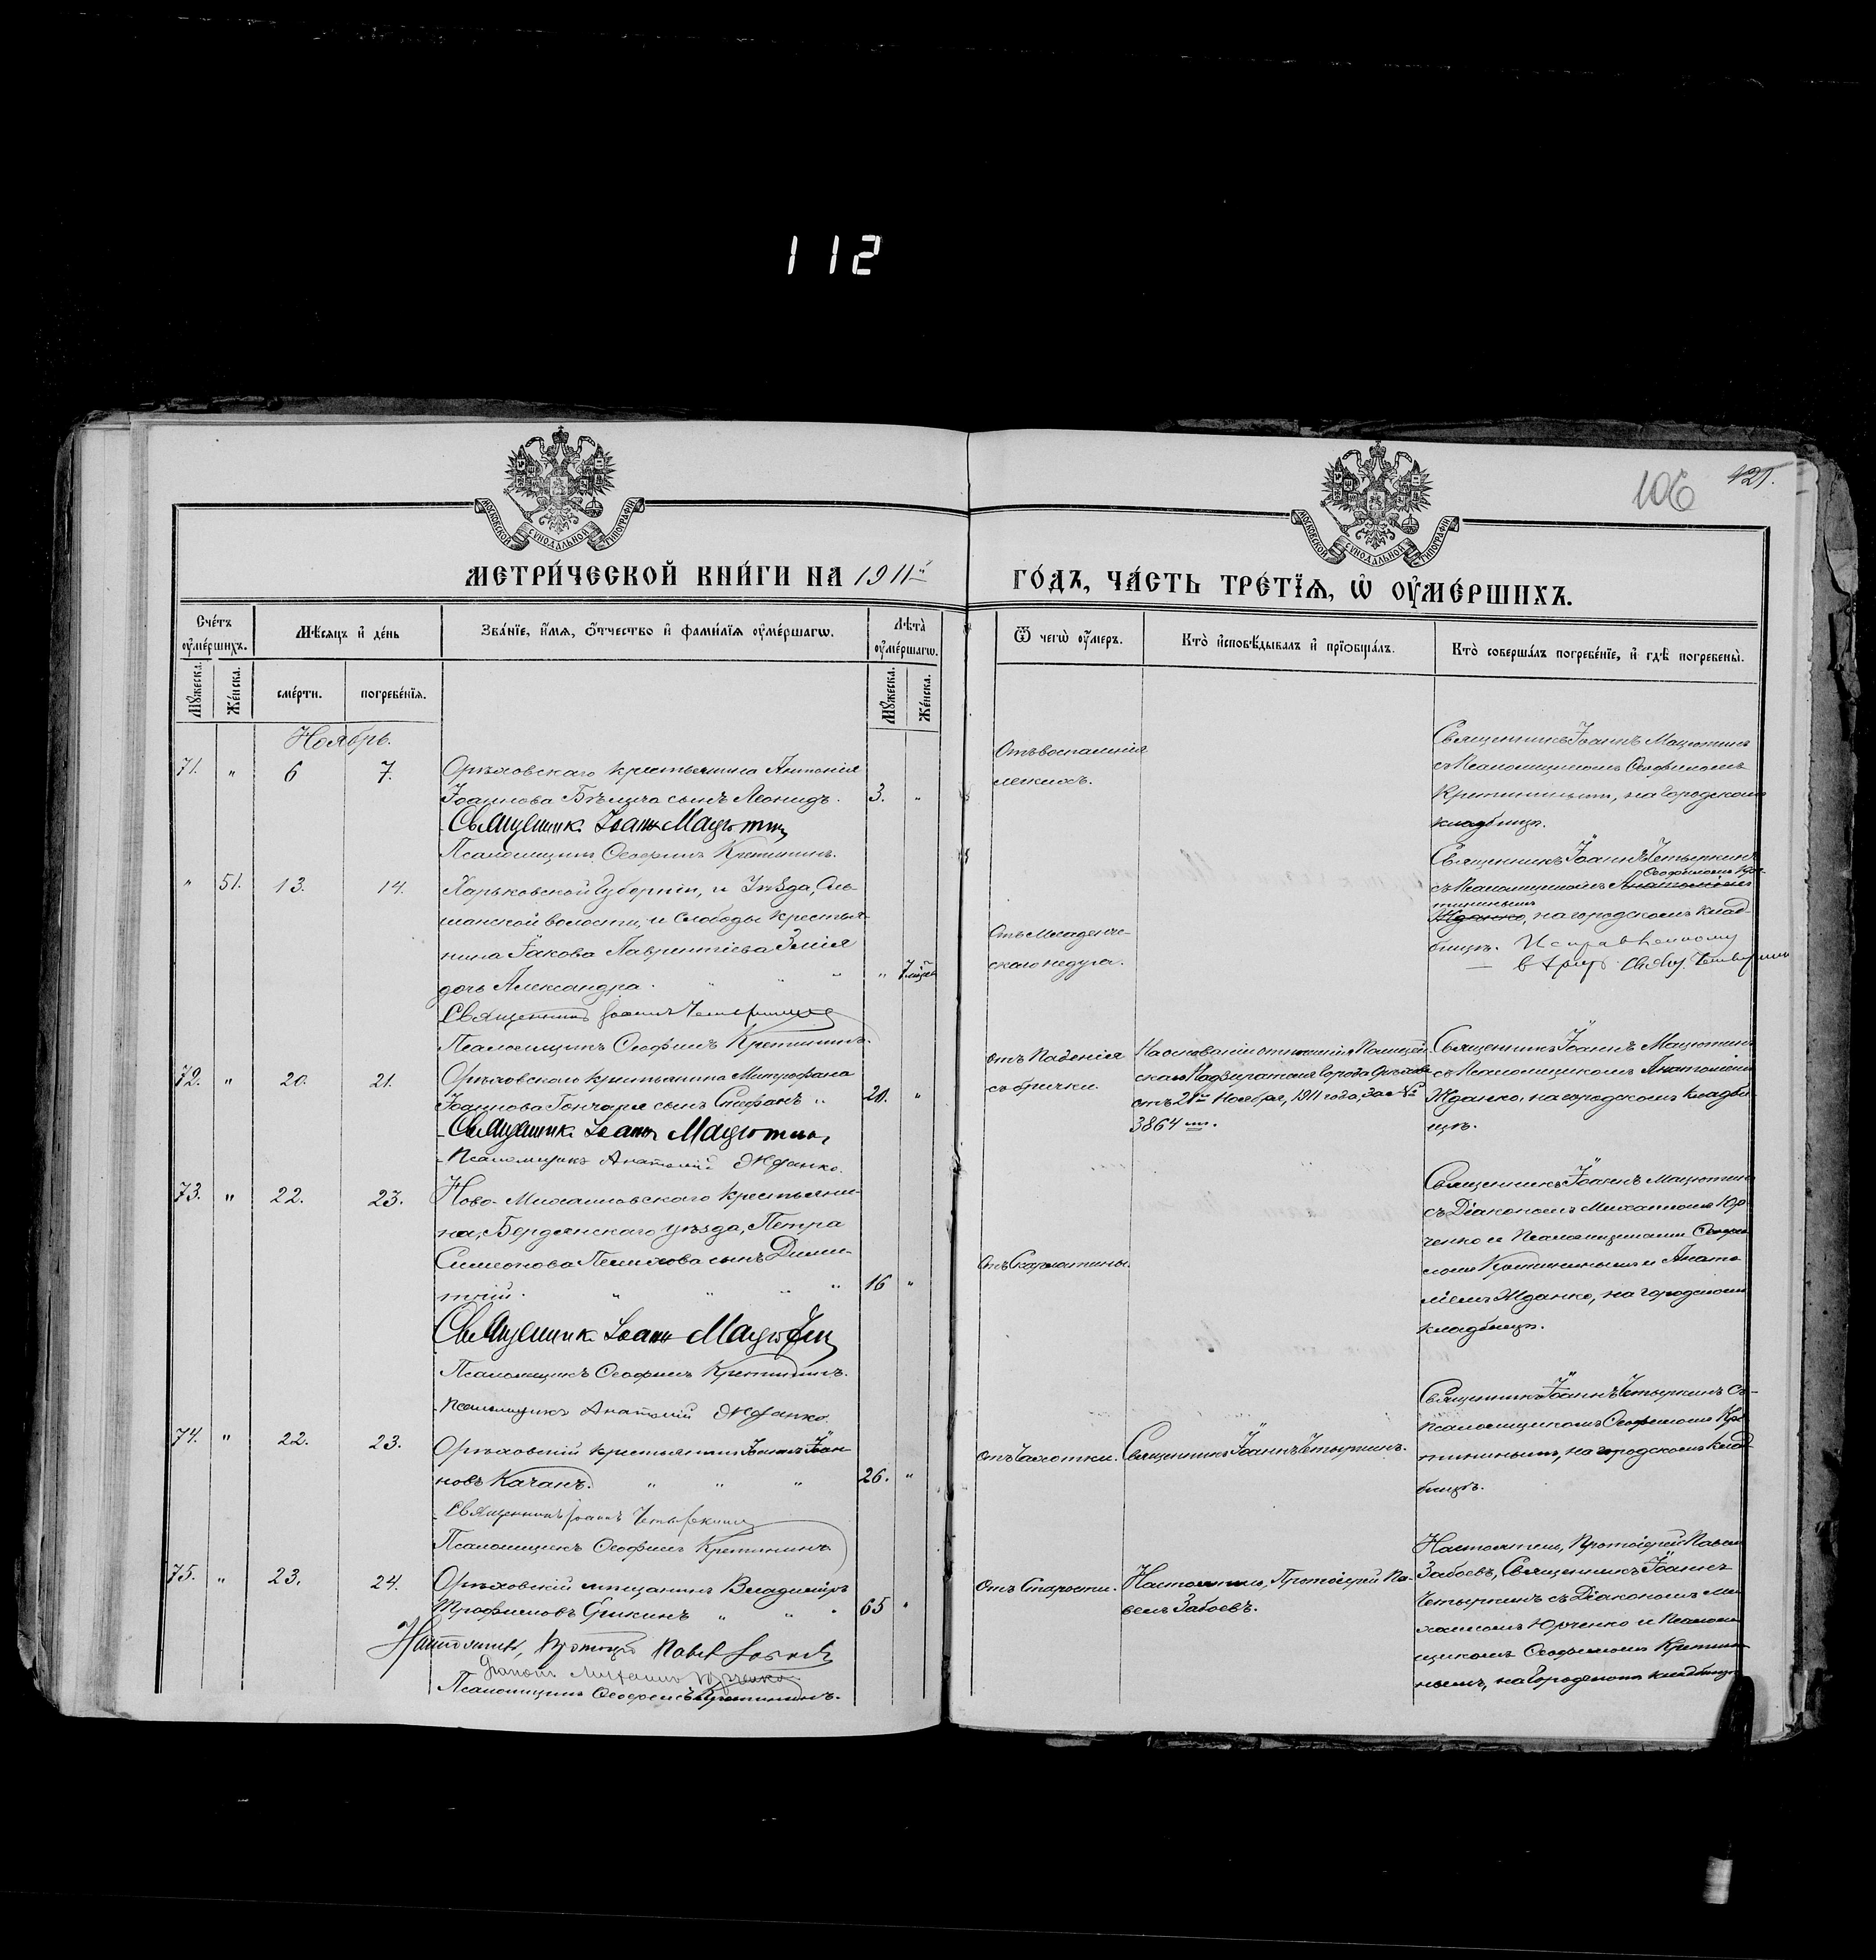 112
106
121.
МОСКОВСКОЙ СѴНОДАЛЬНОЙ ТИПОГРАФІИ
МОСКОВСКОЙ СѴНОДАЛЬНОЙ ТИПОГРАФІИ
МЕТРИ́ЧЕСКОЙ КНИ́ГИ НА 1911й
ГО́ДЪ, ЧА́СТЬ ТРЕ́ТЇѦ, Ѡ҆ ОУ҆МЕ́РШИХЪ.
Сче́тъ оу҆ме́ршихъ.
Мѣ́сяцъ и҆ де́нь
Зва́нїе, и҆́мя, ѻ҆́тчество и҆ фами́лїя оу҆ме́ршагѡ.
Лѣта̀ оу҆ме́ршагѡ.
Ѿ чегѡ̀ оу҆́меръ.
Кто̀ и҆сповѣ́дывалъ и҆ прїѻбща́лъ.
Кто̀ соверша́лъ погребе́нїе, и҆ гдѣ̀ погребены̀.
Мꙋ́жеска.
Же́нска.
сме́рти.
погребе́нїя.
Мꙋ́жеска.
Же́нска.
Ноябрь.
71. " 6 7.
Орѣховскаго крестьянина Антонія
Іоаннова Бѣлича сынъ Леонидъ. 3. "
Священник Іоанн Мацютин
Псаломщикъ Ѳеофилъ Кретининъ.
Отъ воспаленія
легкихъ.
Священникъ Іоаннъ Мацютинъ
съ Псаломщикомъ Ѳеофиломъ
Кретининымъ, на городскомъ
кладбищѣ.
" 51. 13. 14.
Харьковской Губерніи, и Уѣзда, Оль-
шанской волости, и Слободы крестья-
нина Іакова Лаврентіева Змія
дочь Александра. " " " " 7 мѣс
Священникъ Іоаннъ Четыркинъ
Псаломщикъ Ѳеофилъ Кретининъ.
Отъ Младенче-
скаго недуга.
Священникъ Іоаннъ Четыркинъ
Ѳеофиломъ Кре-
съ Псаломщикомъ Анатоліемъ
тининымъ
Жданко, на городскомъ клад-
бищѣ. Исправленному
вѣрить. Свящ. Четыркин
72. " 20. 21.
Орѣховскаго крестьянина Митрофана
Іоаннова Гончаря сынъ Стефанъ " 20. "
Священник Іоанн Мацютин
Псаломщикъ Анатолій Жданко.
отъ Паденія
съ брички.
На основаніи отношенія Полицей-
скаго Надзирателя Города Орѣхова
отъ 21го Ноября, 1911 года, за №
3864 мъ.
Священникъ Іоаннъ Мацютинъ
съ Псаломщикомъ Анатоліемъ
Жданко, на городскомъ кладби-
щѣ.
73. " 22. 23.
Ново-Михайловскаго крестьяни-
на, Бердянскаго уѣзда, Петра
Симеонова сынъ Дими-
трій. " " " " 16 "
Священник Іоанн Мацютин
Псаломщикъ Ѳеофилъ Кретининъ.
Псаломщикъ Анатолій Жданко.
Отъ Скарлатины.
Священникъ Іоаннъ Мацютинъ
съ Діакономъ Михаиломъ Юр-
ченко и Псаломщиками Ѳеофи-
ломъ Кретининымъ и Анато-
ліемъ Жданко, на городскомъ
кладбищѣ.
74. " 22. 23.
Орѣховскій крестьянинъ Іоаннъ Іоан-
новъ Качанъ. " " " 26. "
Священникъ Іоаннъ Четыркинъ
Псаломщикъ Ѳеофилъ Кретининъ
отъ Чахотки.
Священникъ Іоаннъ Четыркинъ.
Священникъ Іоаннъ Четыркинъ съ-
Псаломщикомъ Ѳеофиломъ Кре-
тининымъ, на городскомъ клад-
бищѣ.
75. " 23. 24.
Орѣховскій мѣщанинъ Владиміръ
Трофимовъ " " " 65 "
Настоятель, Протоіерей Павел Забоевъ
Діаконъ Михаилъ Юрченко
Псаломщикъ Ѳеофилъ Кретининъ.
отъ Старости.
Настоятель, Протоіерей Па-
велъ Забоевъ.
Настоятель, Протоіерей Павелъ
Забоевъ, Священникъ Іоаннъ
Четыркинъ съ Діакономъ Ми-
хаиломъ Юрченко и Псалом-
щикомъ Ѳеофиломъ Кретини-
нымъ, на городскомъ кладбищѣ